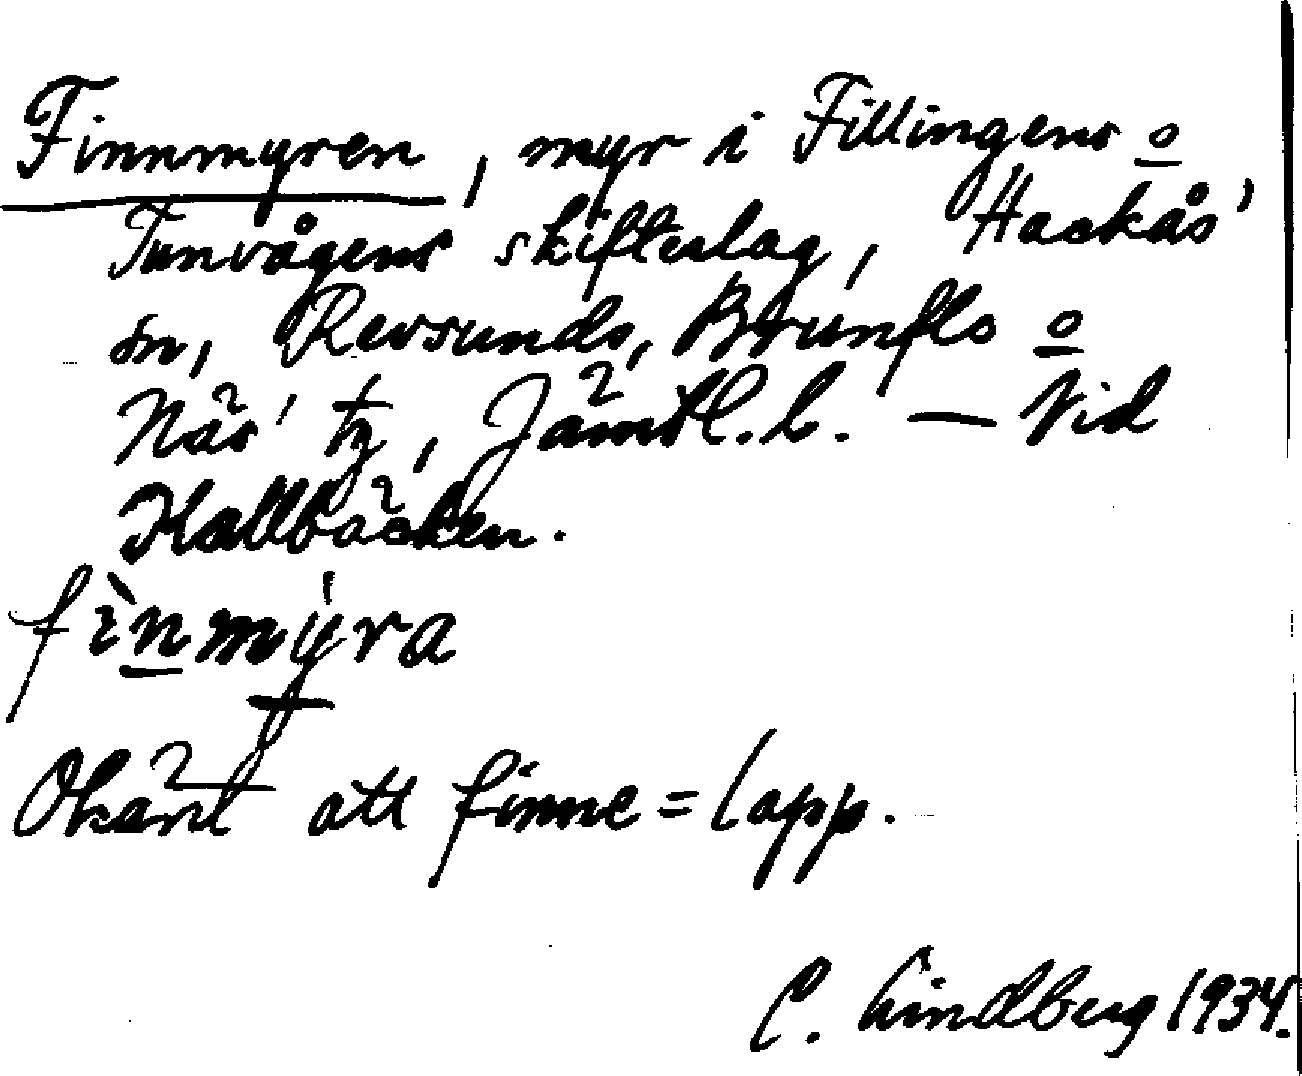 Finnmyren, myr i Fillingens o
Tunvågens skifteslag, Hackås'
sn, Revsunds, Brunflo o
Näs' tg, Jämtl. l. — Vid
Kallbäcken.
fìnmy̍ra
Okänt att finne = lapp.
C. Lindberg 1934.